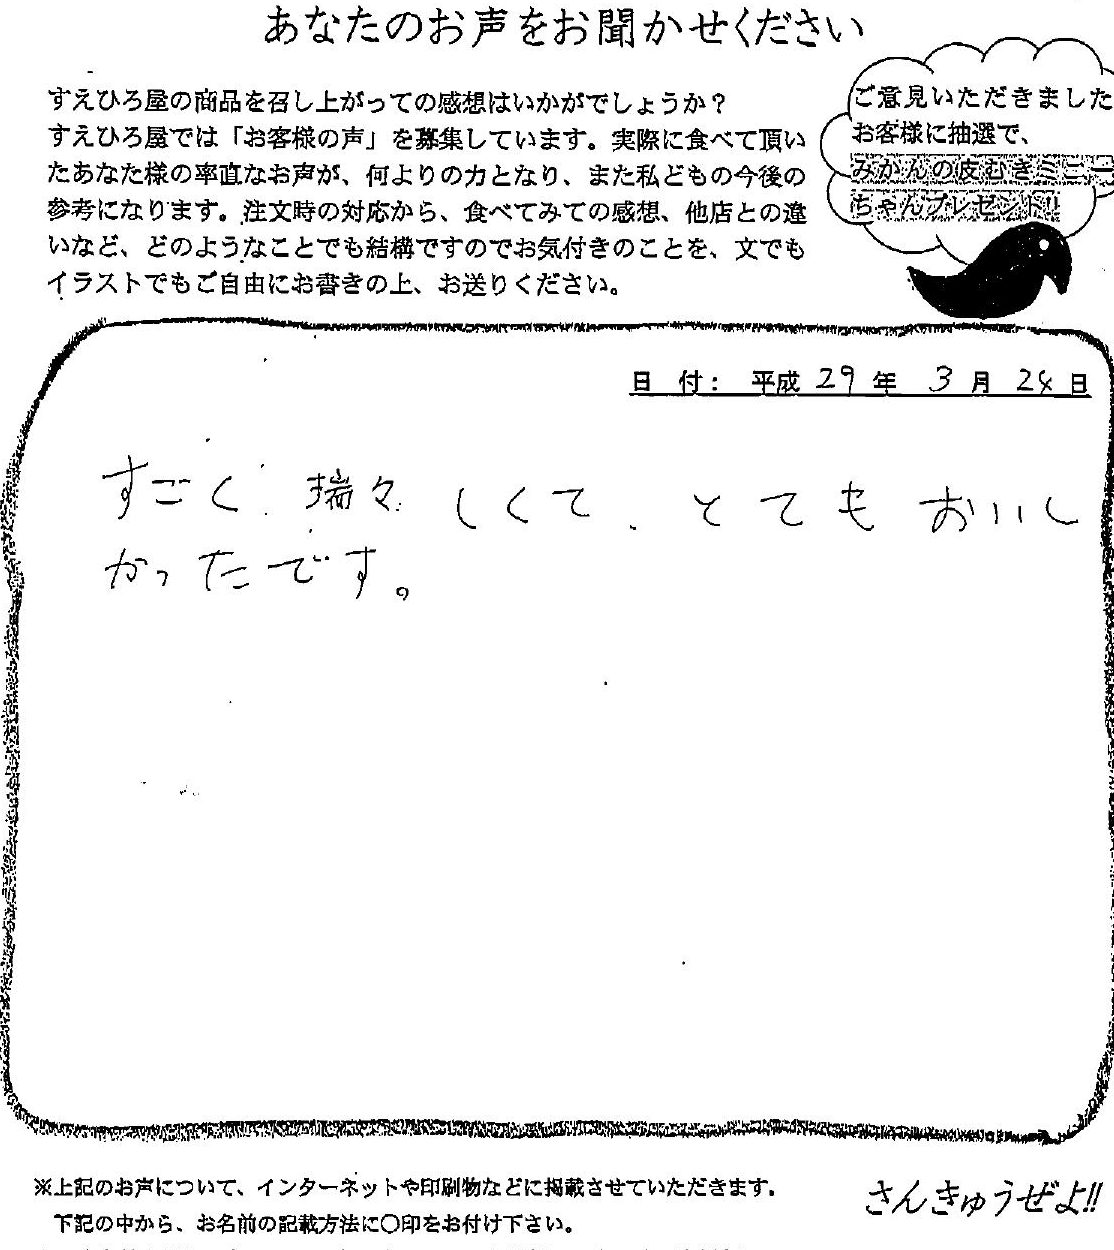 あなたのお声をお聞かせください
すえひろ屋の商品を召し上がっての感想はいかがでしょうか？
すえひろ屋では「お客様の声」を募集しています。実際に食べて頂い
たあなた様の率直なお声が、何よりの力となり、また私どもの今後の
参考になります。注文時の対応から、食べてみての感想、他店との違
いなど、どのようなことでも結構ですのでお気付きのことを、文でも
イラストでもご自由にお書きの上、お送りください。
ご意見いただきました
お客様に抽選で、
みかんの皮むきミニニ
ちゃんプレゼント!!
日 付： 平成 29 年 3 月 24 日
すごく瑞々しくて、とてもおいし
かったです。
※上記のお声について、インターネットや印刷物などに掲載させていただきます。
下記の中から、お名前の記載方法に○印をお付け下さい。
さんきゅうぜよ!!